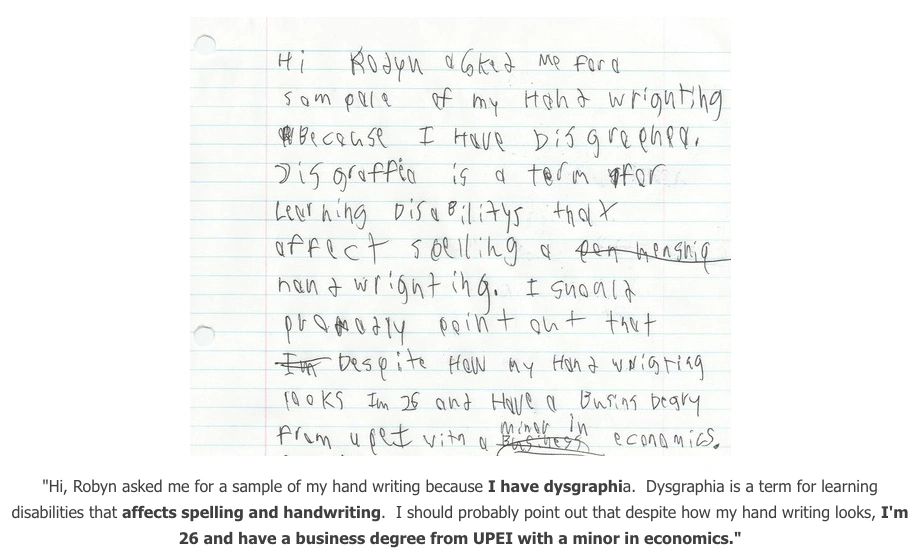 Hi Rodyn asked me for a
sam pale of my Hand wrighting
Because I Have Disgraphea.
Disgraffia is a term for
Learning Disabilitys that
affect spelling a pen menship
hand wrighting. I should
probably point out that
Im Despite How my Hand wrigting
looks Im 26 and Have a Busins Degry
from upeI with a minor in Business economics.
"Hi, Robyn asked me for a sample of my hand writing because I have dysgraphia. Dysgraphia is a term for learning
disabilities that affects spelling and handwriting. I should probably point out that despite how my hand writing looks, I'm
26 and have a business degree from UPEI with a minor in economics."